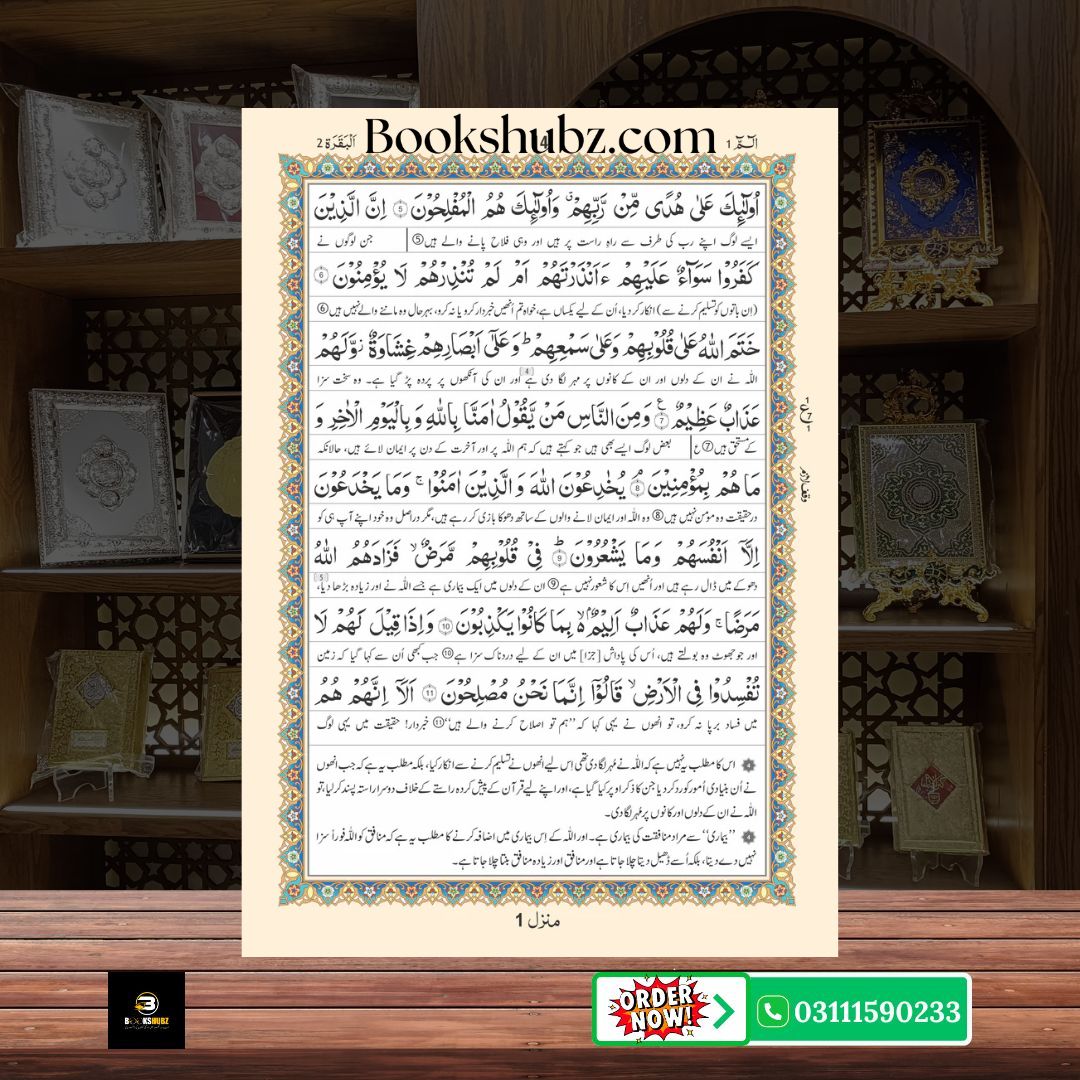 Bookshubz.com
الٓمّٓ 1
4
اَلْبَقَرَة 2
اُولٰٓئِكَ عَلٰى هُدًى مِّنْ رَّبِّهِمْ ۙ وَاُولٰٓئِكَ هُمُ الْمُفْلِحُوْنَ ۝5 اِنَّ الَّذِيْنَ
ایسے لوگ اپنے رب کی طرف سے راہِ راست پر ہیں اور وہی فلاح پانے والے ہیں ⑤ جن لوگوں نے
كَفَرُوْا سَوَآءٌ عَلَيْهِمْ ءَاَنْذَرْتَهُمْ اَمْ لَمْ تُنْذِرْهُمْ لَا يُؤْمِنُوْنَ ۝6
(اِن باتوں کو تسلیم کرنے سے) انکار کر دیا، اُن کے لیے یکساں ہے، خواہ تم انھیں خبردار کرو یا نہ کرو، بہرحال وہ ماننے والے نہیں ہیں ⑥
خَتَمَ اللّٰهُ عَلٰى قُلُوْبِهِمْ وَعَلٰى سَمْعِهِمْ ؕ وَعَلٰٓى اَبْصَارِهِمْ غِشَاوَةٌ ز وَّلَهُمْ
اللّٰہ نے ان کے دلوں اور ان کے کانوں پر مہر لگا دی ہے [4] اور ان کی آنکھوں پر پردہ پڑ گیا ہے۔ وہ سخت سزا
عَذَابٌ عَظِيْمٌ ۝7 ع وَمِنَ النَّاسِ مَنْ يَّقُوْلُ اٰمَنَّا بِاللّٰهِ وَ بِالْيَوْمِ الْاٰخِرِ وَ
کے مستحق ہیں ⑦ ع بعض لوگ ایسے بھی ہیں جو کہتے ہیں کہ ہم اللّٰہ پر اور آخرت کے دن پر ایمان لائے ہیں، حالانکہ
مَا هُمْ بِمُؤْمِنِيْنَ ۝8 يُخٰدِعُوْنَ اللّٰهَ وَ الَّذِيْنَ اٰمَنُوْا ۚ وَمَا يَخْدَعُوْنَ
درحقیقت وہ مومن نہیں ہیں ⑧ وہ اللّٰہ اور ایمان لانے والوں کے ساتھ دھوکا بازی کر رہے ہیں، مگر دراصل وہ خود اپنے آپ ہی کو
اِلَّاۤ اَنْفُسَهُمْ وَمَا يَشْعُرُوْنَ ۝9 ؕ فِيْ قُلُوْبِهِمْ مَّرَضٌ ۙ فَزَادَهُمُ اللّٰهُ
دھوکے میں ڈال رہے ہیں اور اُنھیں اِس کا شعور نہیں ہے ⑨ ان کے دلوں میں ایک بیماری ہے جسے اللّٰہ نے اور زیادہ بڑھا دیا، [5]
مَرَضًا ۚ وَلَهُمْ عَذَابٌ اَلِيْمٌۢ ۙ۬ بِمَا كَانُوْا يَكْذِبُوْنَ ۝10 وَ اِذَا قِيْلَ لَهُمْ لَا
اور جو جھوٹ وہ بولتے ہیں، اُس کی پاداش [جزا] میں ان کے لیے دردناک سزا ہے ⑩ جب کبھی اُن سے کہا گیا کہ زمین
تُفْسِدُوْا فِي الْاَرْضِ ۙ قَالُوْٓا اِنَّمَا نَحْنُ مُصْلِحُوْنَ ۝11 اَلَاۤ اِنَّهُمْ هُمُ
میں فساد برپا نہ کرو، تو انھوں نے یہی کہا کہ ”ہم تو اصلاح کرنے والے ہیں“ ⑪ خبردار! حقیقت میں یہی لوگ
اس کا مطلب یہ نہیں ہے کہ اللّٰہ نے مُہر لگا دی تھی اِس لیے انھوں نے تسلیم کرنے سے انکار کیا، بلکہ مطلب یہ ہے کہ جب انھوں
نے اُن بنیادی اُمور کو رد کر دیا جن کا ذکر اوپر کیا گیا ہے، اور اپنے لیے قرآن کے پیش کردہ راستے کے خلاف دوسرا راستہ پسند کر لیا، تو
اللّٰہ نے ان کے دلوں اور کانوں پر مُہر لگا دی۔
”بیماری“ سے مراد منافقت کی بیماری ہے۔ اور اللّٰہ کے اِس بیماری میں اضافہ کرنے کا مطلب یہ ہے کہ منافق کو اللّٰہ فوراً سزا
نہیں دے دیتا، بلکہ اُسے ڈھیل دیتا چلا جاتا ہے اور منافق اور زیادہ منافق بنتا چلا جاتا ہے۔
1
ع
7
1
وقف لازم
منزل 1
BOOKSHUBZ
ORDER
NOW!
03111590233